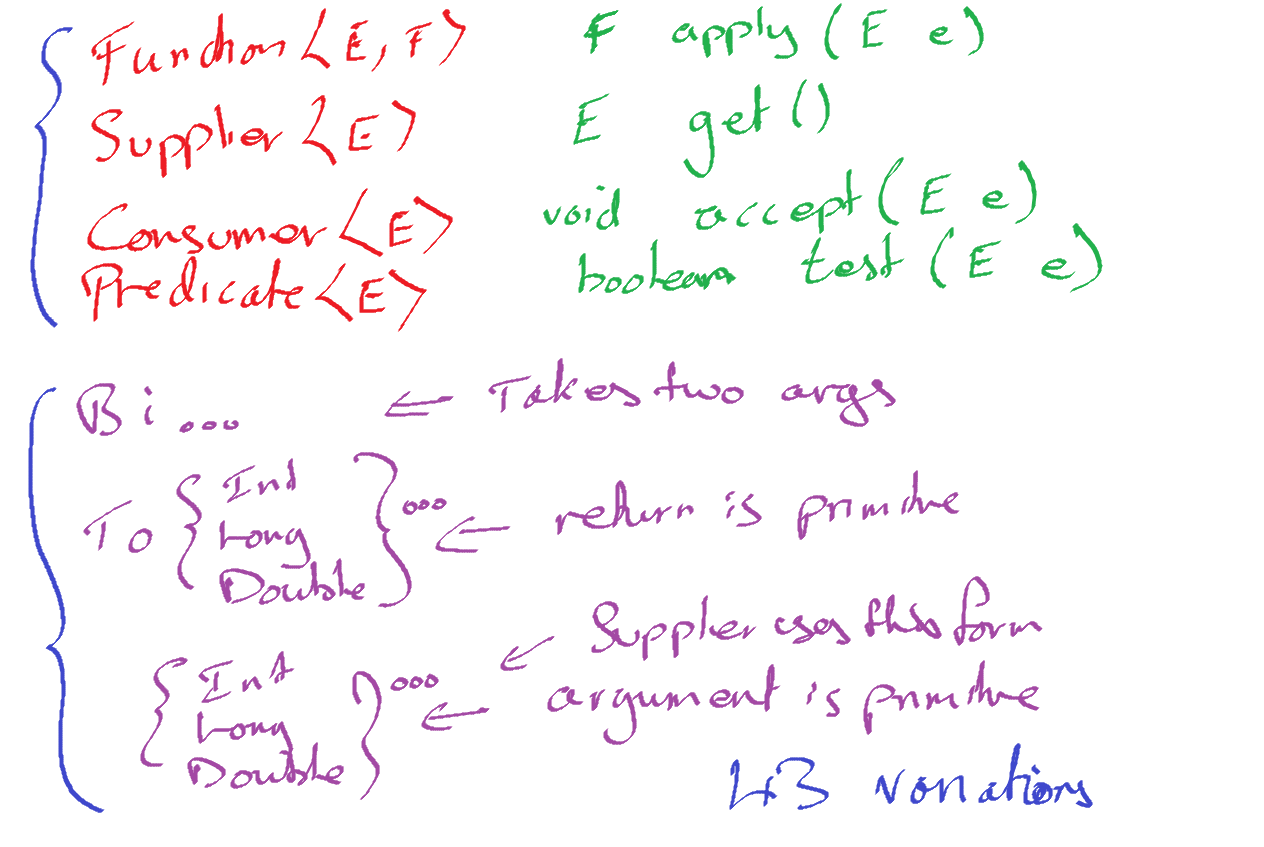 Function<E, F> F apply(E e)
Supplier<E> E get()
Consumer<E> void accept(E e)
Predicate<E> boolean test(E e)
Bi... ← Takes two args
To { Int
Long
Double } ... ← return is primitive
{ Int
Long
Double } ... ← Supplier uses this form
← argument is primitive
43 variations